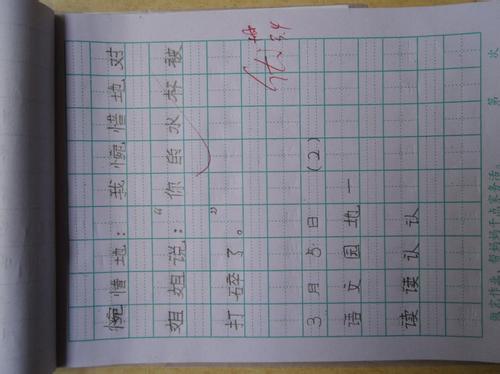 惋惜地：我惋惜地对
姐姐说：“你的水杯被
打碎了。”
3.4
3月5日（2）
语文园地一
读读认认
第 次